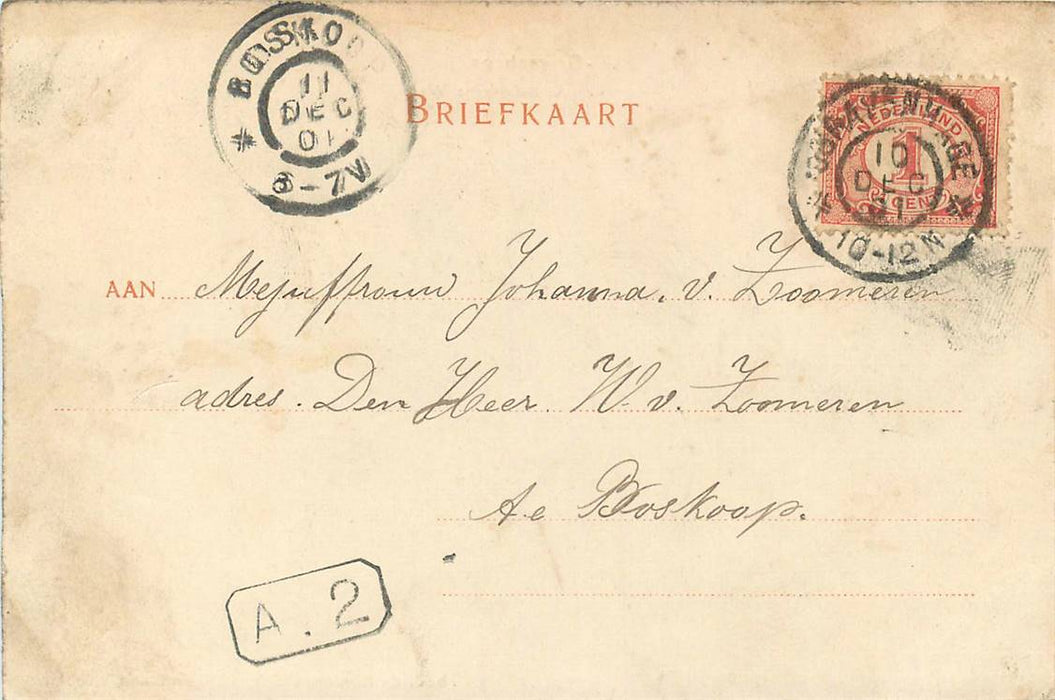 BOSKOOP
11
DEC
01
6-7V
BRIEFKAART
'SGRAVENHAGE
10
DEC
01
10-12N
NEDERLAND
1
CENT
AAN Mejuffrouw Johanna. v. Zoomeren
adres. Den Heer W. v. Zoomeren
te Boskoop.
A.2